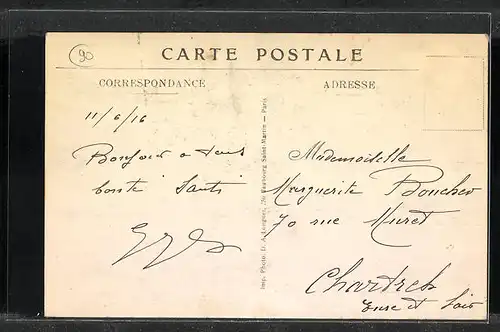 90
CARTE POSTALE
CORRESPONDANCE
ADRESSE
11/6/16
Bonjour a tous
bonté Santé
Mademoiselle
Marguerite Boucher
70 rue Muret
Chartres
Eure et Loir
Imp. Photo. D. A. Longuet, 250 Faubourg Saint-Martin — Paris